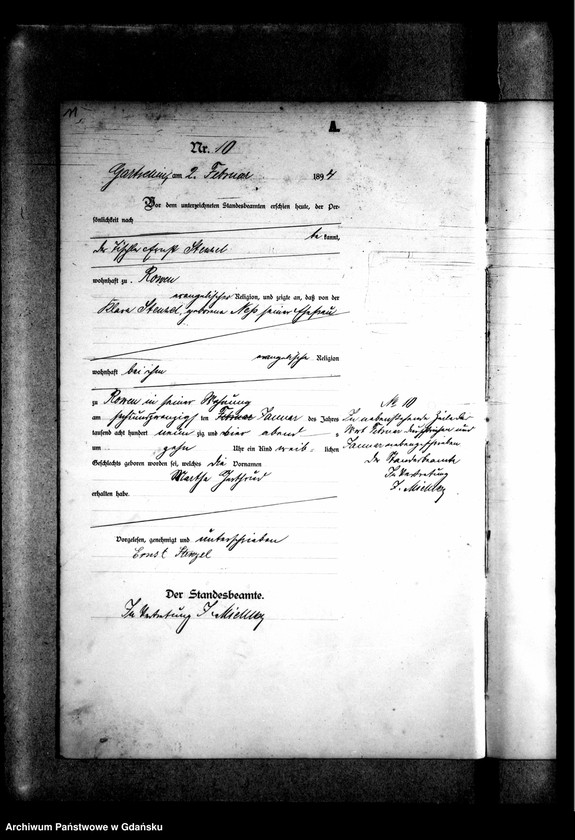 A.
Nr. 10
am 2. Februar 1894
Vor dem unterzeichneten Standesbeamten erschien heute, der Per-
sönlichkeit nach
be kannt,
der Tischler Ernst Stenzel
wohnhaft zu Rowen
evangelischer Religion, und zeigte an, daß von der
Klara Stenzel, geborene seiner Ehefrau
evangelische Religion
wohnhaft bei ihm
zu Rowen in seiner Wohnung
am sechsundzwanzig ten Februar Januar des Jahres
tausend acht hundert neun zig und vier abend s
um zehn Uhr ein Kind weib lichen
Geschlechts geboren worden sei, welches die Vornamen
Martha Gerthrud
erhalten habe.
Vorgelesen, genehmigt und unterschrieben
Ernst Stenzel
Der Standesbeamte.
In Vertretung
No 10
In nebenstehende Zeile das
Wort Februar durchstrichen und
Januar nebengeschrieben
Der Standesbeamte
In Vertretung
Archiwum Państwowe w Gdańsku